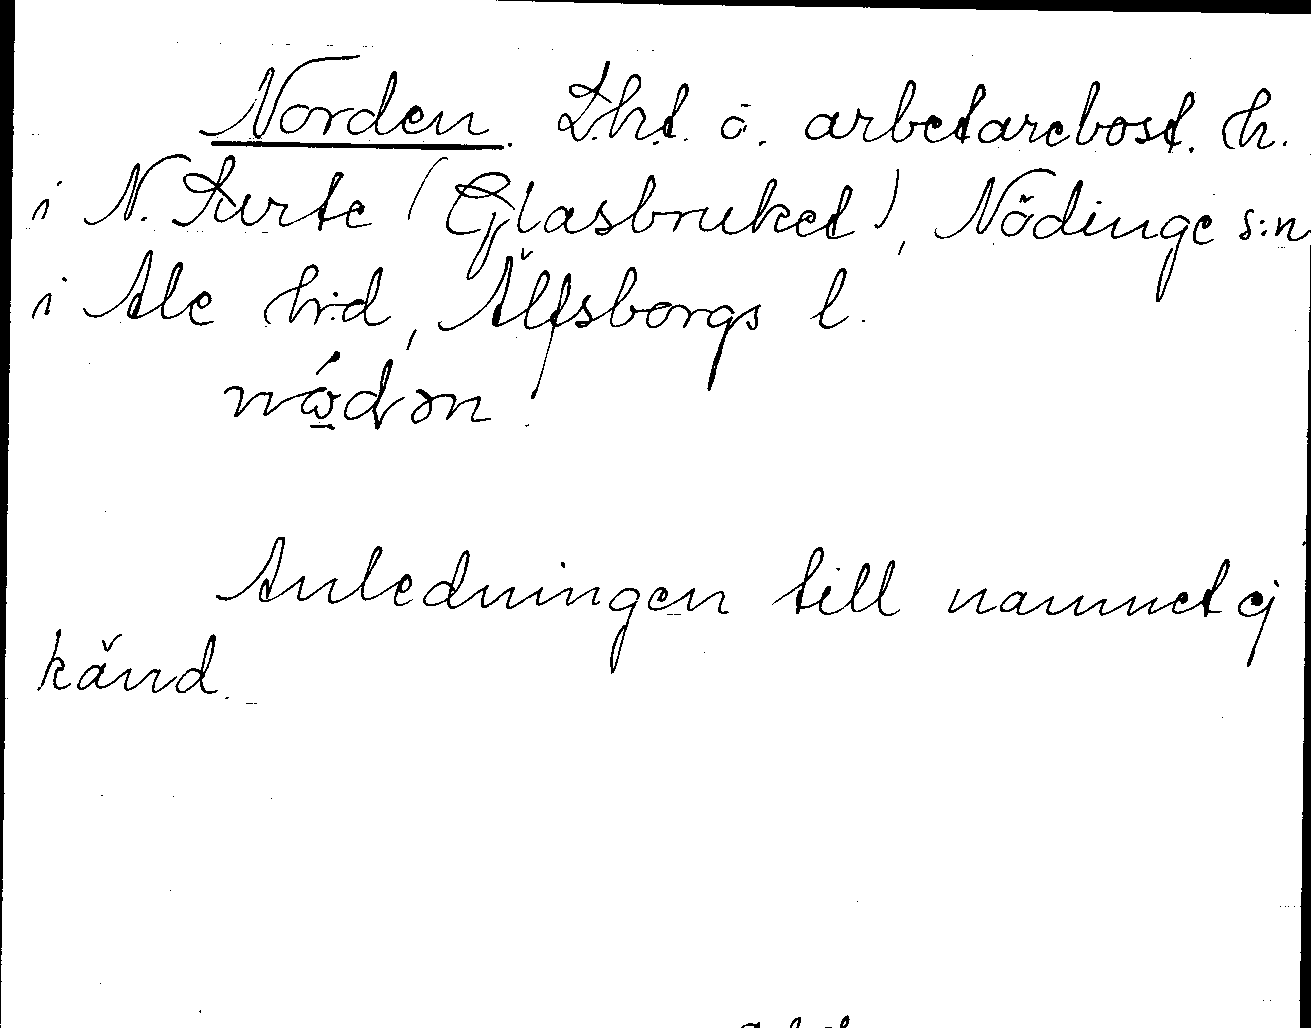 Norden. Lht. o. arbetarebost. h.
i N. Surte (Glasbruket), Nödinge s:n
i Ale h:d, Älfsborgs l.
Anledningen till namnet ej
känd.